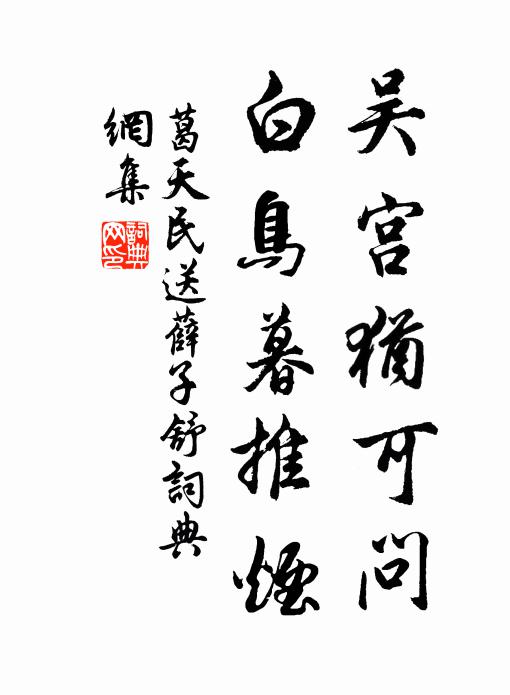 吴宫猶可問
白鳥暮推煙
葛天民送薛子舒詞典
網集
詞典網印